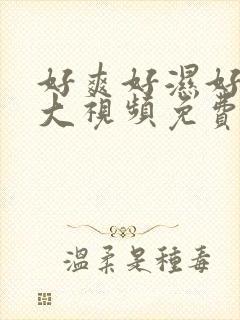 好爽好濕好
大視頻免費
溫柔是種毒